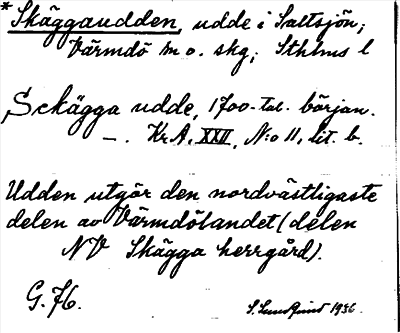 *Skäggaudden, udde i Saltsjön;
Värmdö m o. skg; Sthlms l
Sckägga udde, 1700-tal. början.
—. Kr A, XXII, N:o 11, lit. b.
Udden utgör den nordvästligaste
delen av Värmdölandet (delen
NV Skägga herrgård).
G. 76.
S. Lundquist 1936.